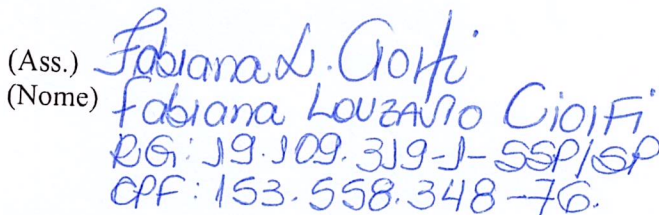 (Ass.) Fabiana L. Ciolfi
(Nome) Fabiana Louzavio Ciolfi
RG: 19.109.319-1-SSP/SP
CPF: 153.558.348-76.